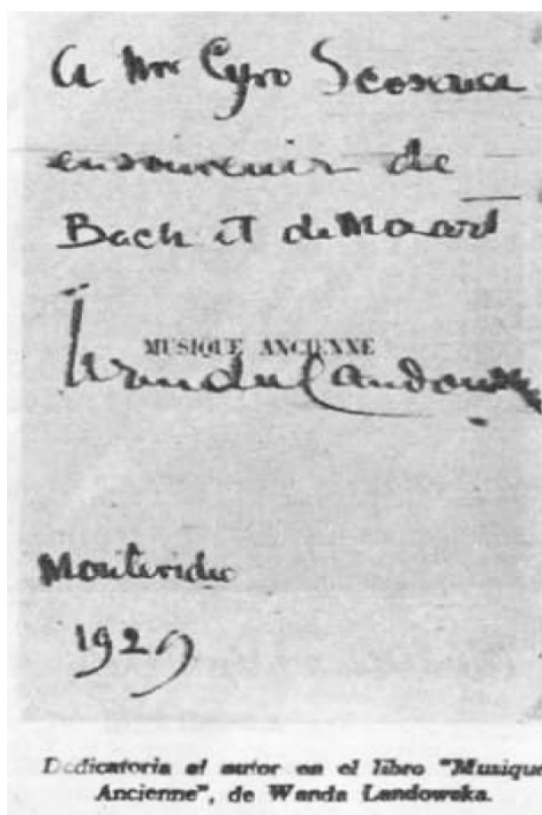 A Mr Cyro Scoseria
en souvenir de
Bach et de Mozart
MUSIQUE ANCIENNE
Wanda Landowska
Montevideo
1929
Dedicatoria al autor en el libro "Musique
Ancienne", de Wanda Landowska.